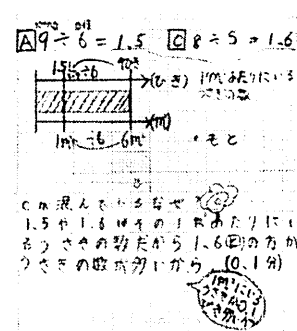 A 9÷6=1.5 C 8÷5=1.6
1.5 ÷6 9ひき
(ひき) 1m²あたりにいる
うさぎの数
(m²)
1m² ÷6 6m²
・もと
Cが混んでいる なぜ?
1.5や1.6はその1m²あたりにい
るうさぎの数だから 1.6の方が
うさぎの数が多いから (0.1分)
1m²にいる
うさぎが0.1
うさぎ分多い